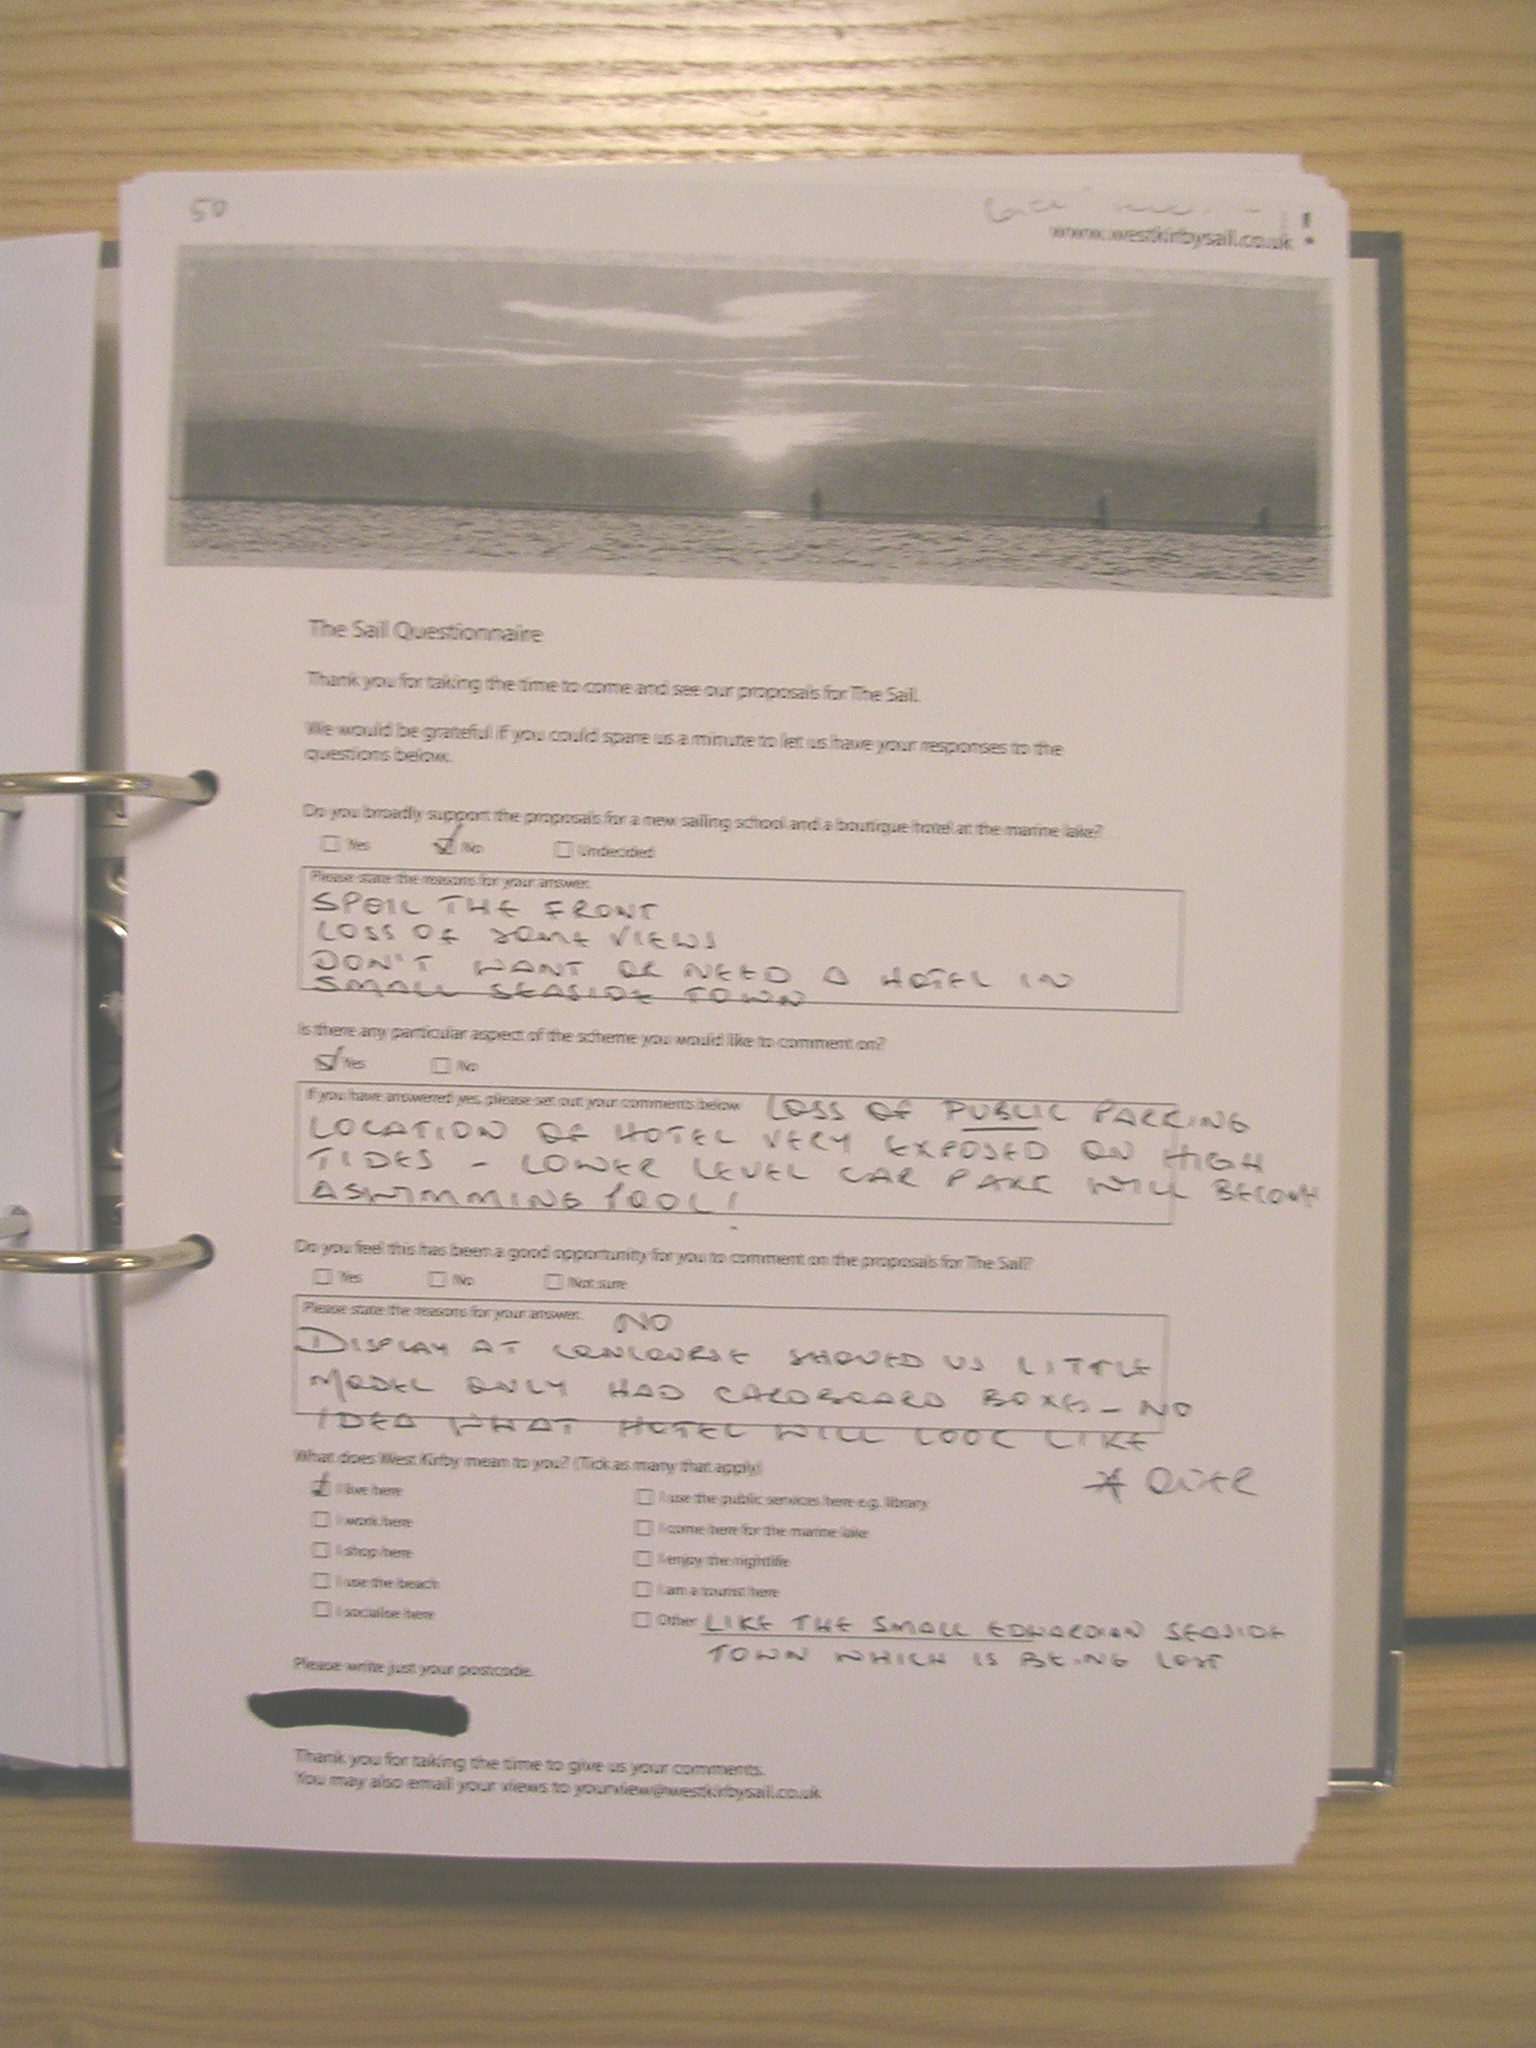 50
www.westkirbysail.co.uk !
The Sail Questionnaire
Thank you for taking the time to come and see our proposals for The Sail.
We would be grateful if you could spare us a minute to let us have your responses to the
questions below.
Do you broadly support the proposals for a new sailing school and a boutique hotel at the marine lake?
Yes No Undecided
Please state the reasons for your answer.
SPOIL THE FRONT
LOSS OF SOME VIEWS
DON'T WANT OR NEED A HOTEL IN
SMALL SEASIDE TOWN
Is there any particular aspect of the scheme you would like to comment on?
Yes No
If you have answered yes, please set out your comments below. LOSS OF PUBLIC PARKING
LOCATION OF HOTEL VERY EXPOSED ON HIGH
TIDES - LOWER LEVEL CAR PARK WILL BECOME
A SWIMMING POOL!
Do you feel this has been a good opportunity for you to comment on the proposals for The Sail?
Yes No Not sure
Please state the reasons for your answer. NO
DISPLAY AT CONCOURSE SHOWED US LITTLE
MODEL ONLY HAD CARDBOARD BOXES - NO
IDEA WHAT HOTEL WILL LOOK LIKE
What does West Kirby mean to you? (Tick as many that apply)
* OVER
I live here I use the public services here e.g. library
I work here I come here for the marine lake
I shop here I enjoy the nightlife
I use the beach I am a tourist here
I socialise here Other LIKE THE SMALL EDWARDIAN SEASIDE
TOWN WHICH IS BEING LOST
Please write just your postcode.
Thank you for taking the time to give us your comments.
You may also email your views to yourview@westkirbysail.co.uk